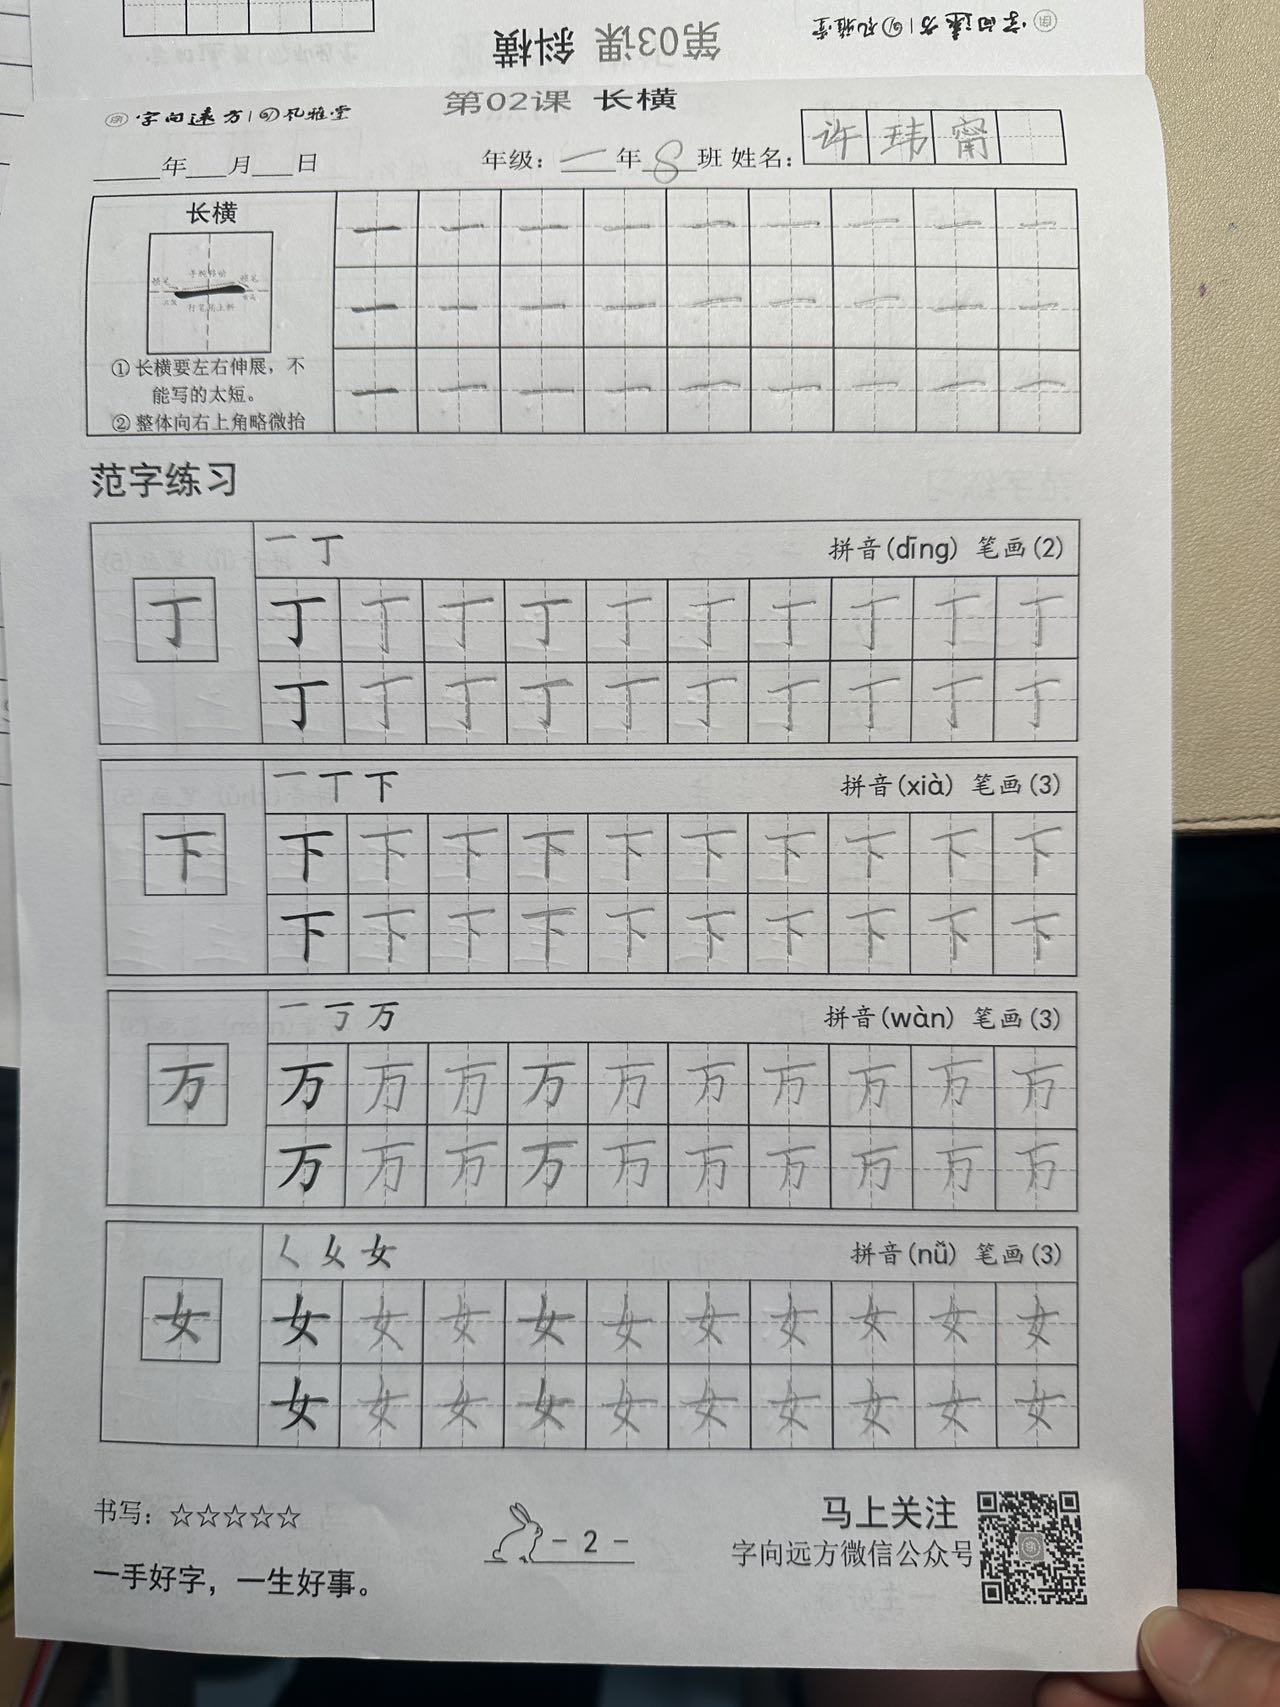 第03课 斜横
字向远方 礼雅堂
第02课 长横
字向远方 礼雅堂
年 月 日 年级: 一年 8 班 姓名: 许玮甯
长横
① 长横要左右伸展，不
能写的太短。
② 整体向右上角略微抬
一 一 一 一 一 一 一 一 一
一 一 一 一 一 一 一 一 一
一 一 一 一 一 一 一 一 一
范字练习
一 丁 拼音(dīng) 笔画(2)
丁
丁 丁 丁 丁 丁 丁 丁 丁 丁 丁
丁 丁 丁 丁 丁 丁 丁 丁 丁 丁
一 丁 下 拼音(xià) 笔画(3)
下
下 下 下 下 下 下 下 下 下 下
下 下 下 下 下 下 下 下 下 下
一 丂 万 拼音(wàn) 笔画(3)
万
万 万 万 万 万 万 万 万 万 万
万 万 万 万 万 万 万 万 万 万
𡿨 女 拼音(nǚ) 笔画(3)
女
女 女 女 女 女 女 女 女 女 女
女 女 女 女 女 女 女 女 女 女
书写: ☆☆☆☆☆
一手好字，一生好事。
- 2 -
马上关注
字向远方微信公众号